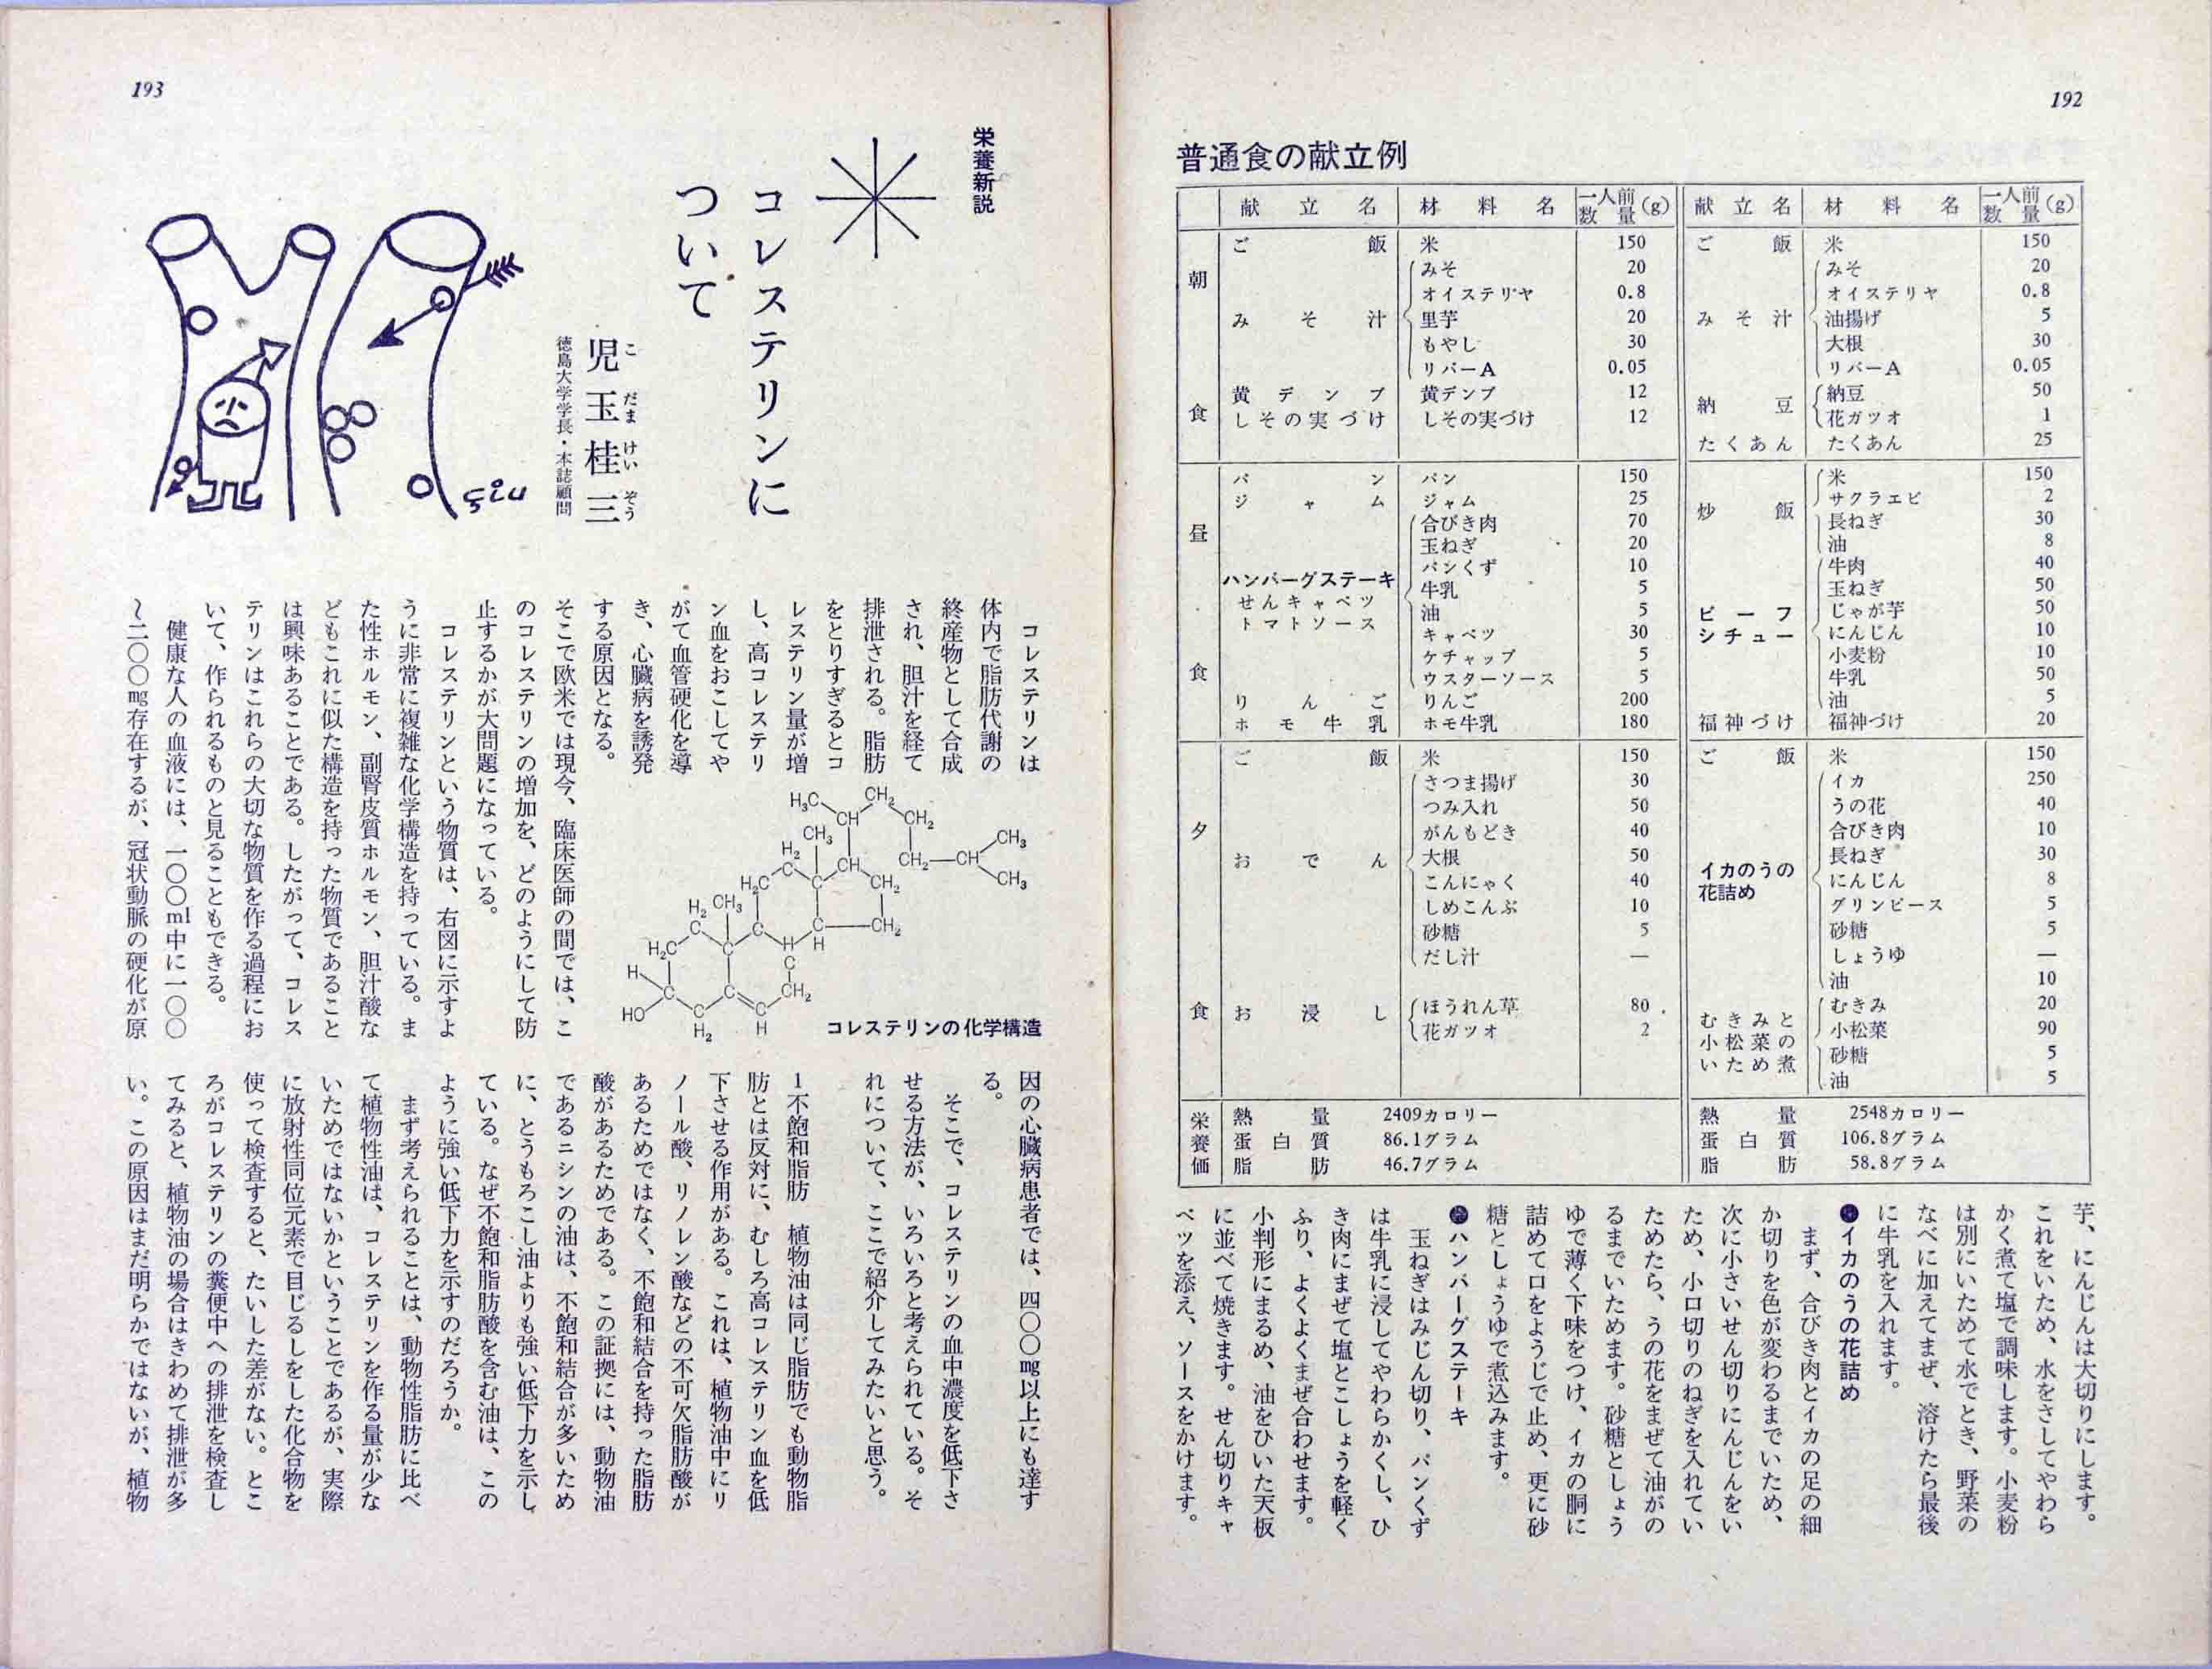 192
普通食の献立例
献立名 材料名 一人前数量(g) 献立名 材料名 一人前数量(g)
朝食
ご飯 米 150
みそ汁 みそ 20
オイステリヤ 0.8
里芋 20
もやし 30
リバーA 0.05
黄デンブ 黄デンブ 12
しその実づけ しその実づけ 12
ご飯 米 150
みそ汁 みそ 20
オイステリヤ 0.8
油揚げ 5
大根 30
リバーA 0.05
納豆 納豆 50
花ガツオ 1
たくあん たくあん 25
昼食
パン パン 150
ジャム ジャム 25
ハンバーグステーキ 合びき肉 70
せんキャベツ 玉ねぎ 20
トマトソース パンくず 10
牛乳 5
油 5
キャベツ 30
ケチャップ 5
ウスターソース 5
りんご りんご 200
ホモ牛乳 ホモ牛乳 180
炒飯 米 150
サクラエビ 2
長ねぎ 30
油 8
ビーフシチュー 牛肉 40
玉ねぎ 50
じゃが芋 50
にんじん 10
小麦粉 10
牛乳 50
油 5
福神づけ 福神づけ 20
夕食
ご飯 米 150
おでん さつま揚げ 30
つみ入れ 50
がんもどき 40
大根 50
こんにゃく 40
しめこんぶ 10
砂糖 5
だし汁 —
お浸し ほうれん草 80
花ガツオ 2
ご飯 米 150
イカのうの花詰め イカ 250
うの花 40
合びき肉 10
長ねぎ 30
にんじん 8
グリンピース 5
砂糖 5
しょうゆ —
油 10
むきみと小松菜のいため煮 むきみ 20
小松菜 90
砂糖 5
油 5
栄養価
熱量 2409カロリー
蛋白質 86.1グラム
脂肪 46.7グラム
熱量 2548カロリー
蛋白質 106.8グラム
脂肪 58.8グラム
芋、にんじんは大切りにします。
これをいため、水をさしてやわら
かく煮て塩で調味します。小麦粉
は別にいためて水でとき、野菜の
なべに加えてまぜ、溶けたら最後
に牛乳を入れます。
●イカのうの花詰め
まず、合びき肉とイカの足の細
か切りを色が変わるまでいため、
次に小さいせん切りにんじんをい
ため、小口切りのねぎを入れてい
ためたら、うの花をまぜて油がの
るまでいためます。砂糖としょう
ゆで薄く下味をつけ、イカの胴に
詰めて口をようじで止め、更に砂
糖としょうゆで煮込みます。
●ハンバーグステーキ
玉ねぎはみじん切り、パンくず
は牛乳に浸してやわらかくし、ひ
き肉にまぜて塩とこしょうを軽く
ふり、よくよくまぜ合わせます。
小判形にまるめ、油をひいた天板
に並べて焼きます。せん切りキャ
ベツを添え、ソースをかけます。
193
栄養新説
コレステリンに
ついて
児玉桂三
こだまけいぞう
徳島大学学長・本誌顧問
çiu
コレステリンは
体内で脂肪代謝の
終産物として合成
され、胆汁を経て
排泄される。脂肪
をとりすぎるとコ
レステリン量が増
し、高コレステリ
ン血をおこしてや
がて血管硬化を導
き、心臓病を誘発
する原因となる。
そこで欧米では現今、臨床医師の間では、こ
のコレステリンの増加を、どのようにして防
止するかが大問題になっている。
コレステリンという物質は、右図に示すよ
うに非常に複雑な化学構造を持っている。ま
た性ホルモン、副腎皮質ホルモン、胆汁酸な
どもこれに似た構造を持った物質であること
は興味あることである。したがって、コレス
テリンはこれらの大切な物質を作る過程にお
いて、作られるものと見ることもできる。
健康な人の血液には、一〇〇ml中に一〇〇
〜二〇〇mg存在するが、冠状動脈の硬化が原
H₃C CH₂
CH CH₂
CH₃ CH₃
H₂ CH₂—CH
C CH CH₃
H₂C C CH₂
H₂ CH₃
C C C CH₂
H₂C C H H
H C C CH₂
HO C C C
H₂ H
コレステリンの化学構造
因の心臓病患者では、四〇〇mg以上にも達す
る。
そこで、コレステリンの血中濃度を低下さ
せる方法が、いろいろと考えられている。そ
れについて、ここで紹介してみたいと思う。
1不飽和脂肪　植物油は同じ脂肪でも動物脂
肪とは反対に、むしろ高コレステリン血を低
下させる作用がある。これは、植物油中にリ
ノール酸、リノレン酸などの不可欠脂肪酸が
あるためではなく、不飽和結合を持った脂肪
酸があるためである。この証拠には、動物油
であるニシンの油は、不飽和結合が多いため
に、とうもろこし油よりも強い低下力を示し
ている。なぜ不飽和脂肪酸を含む油は、この
ように強い低下力を示すのだろうか。
まず考えられることは、動物性脂肪に比べ
て植物性油は、コレステリンを作る量が少な
いためではないかということであるが、実際
に放射性同位元素で目じるしをした化合物を
使って検査すると、たいした差がない。とこ
ろがコレステリンの糞便中への排泄を検査し
てみると、植物油の場合はきわめて排泄が多
い。この原因はまだ明らかではないが、植物